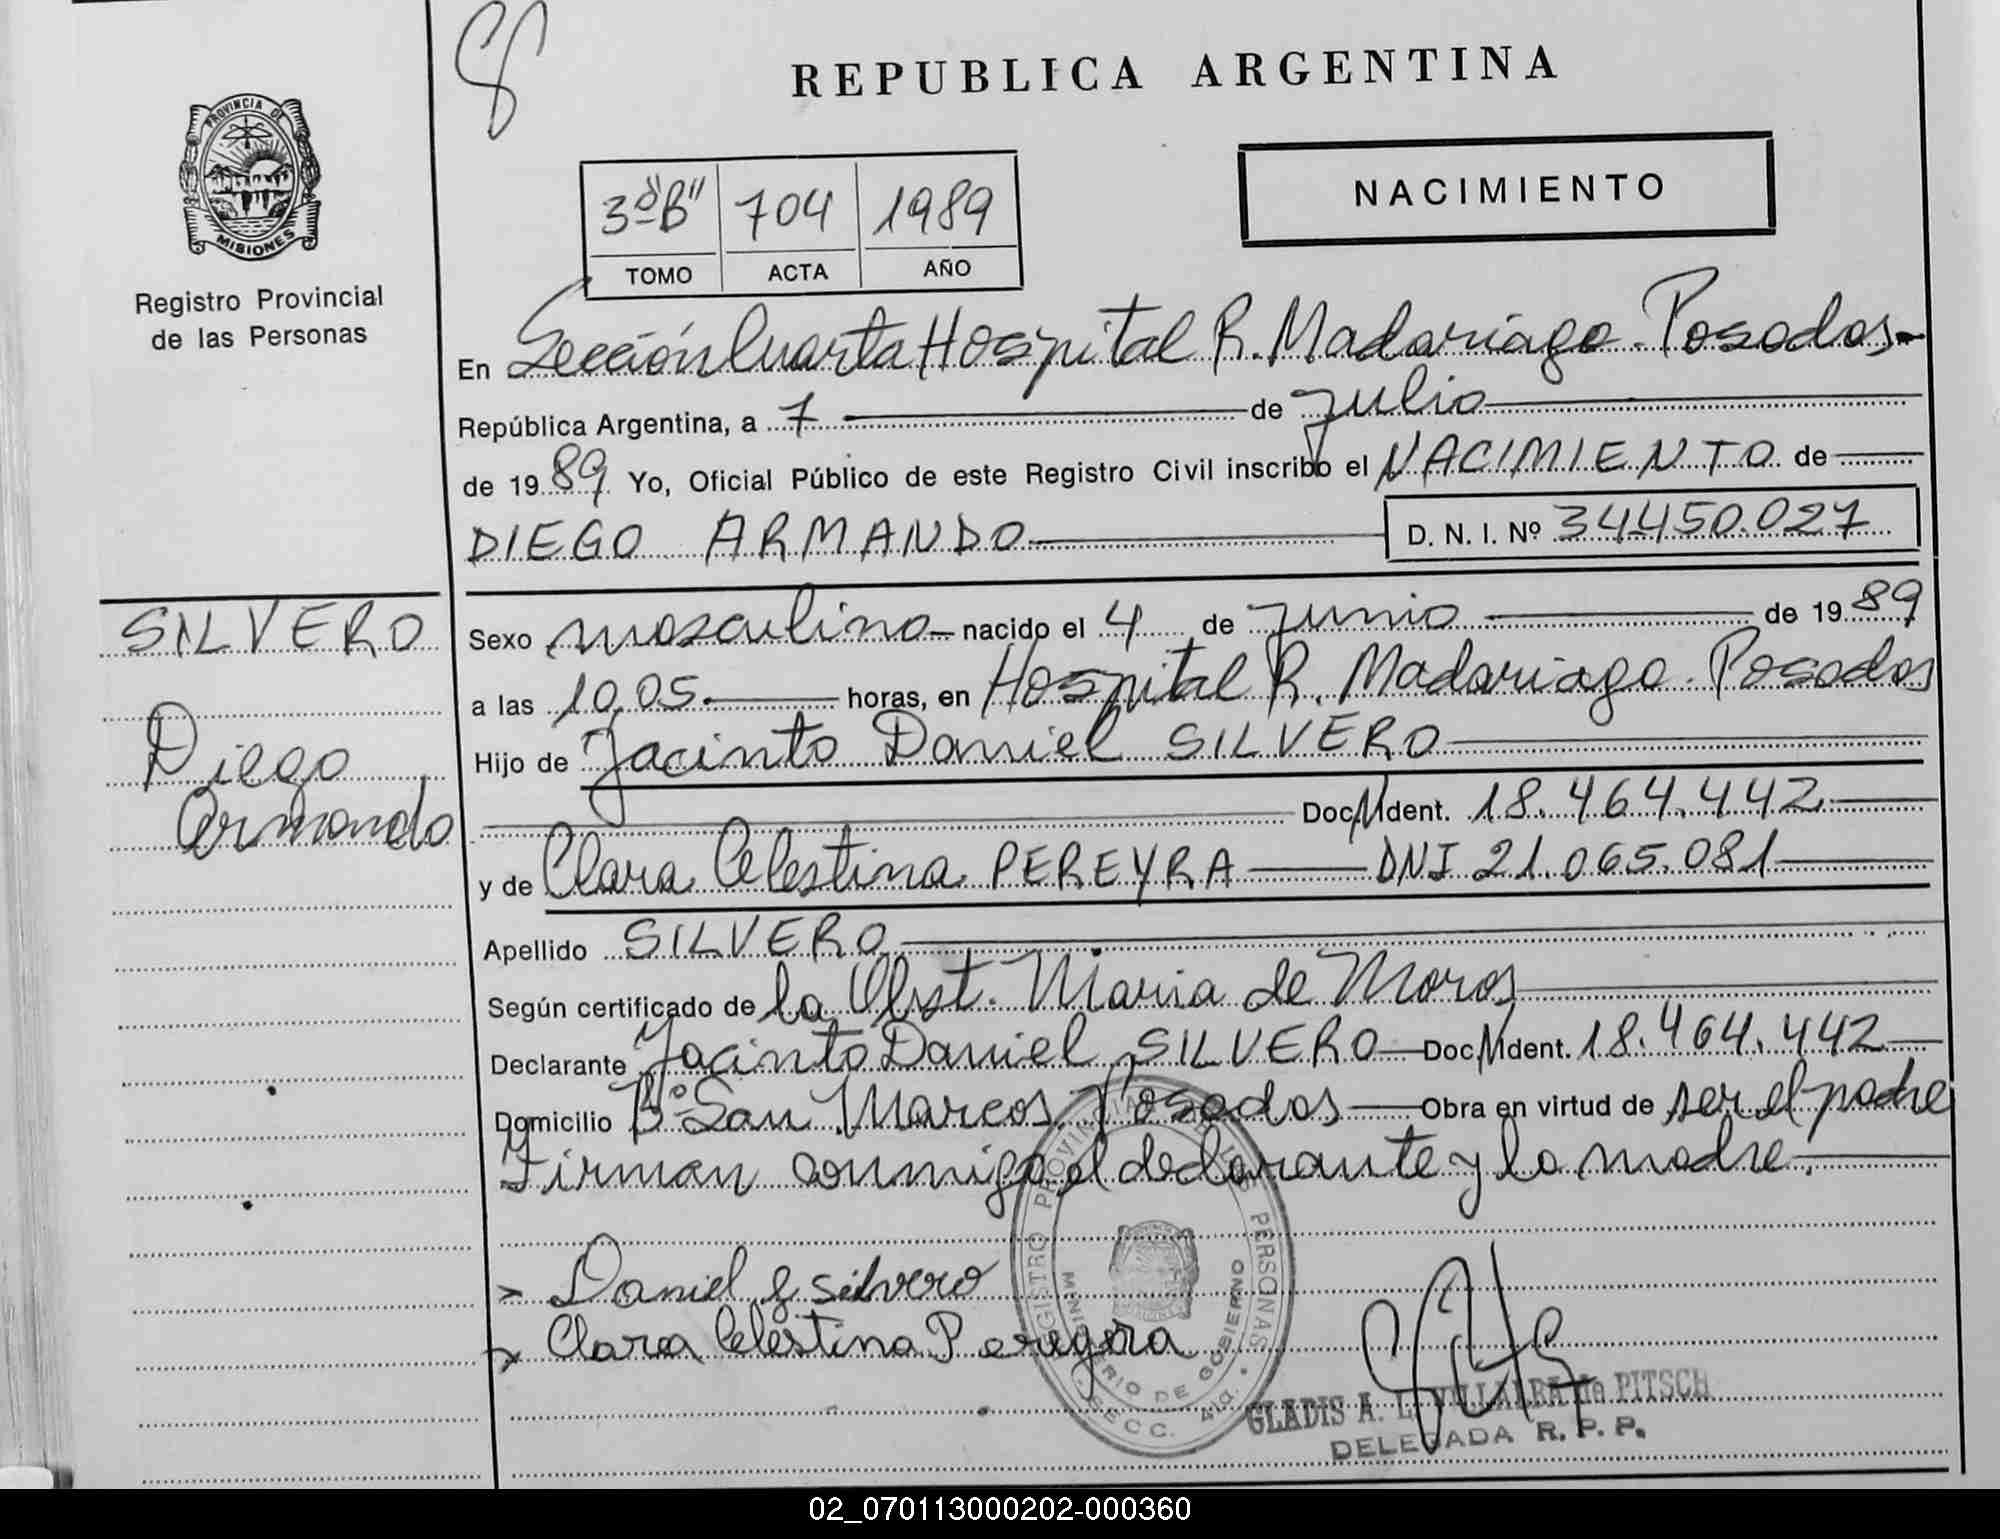 REPUBLICA ARGENTINA
PROVINCIA DE
MISIONES
Registro Provincial
de las Personas
3º "B" 704 1989
TOMO ACTA AÑO
NACIMIENTO
En Sección Cuarta Hospital R. Madariaga - Posadas -
República Argentina, a 7 de julio
de 1989 Yo, Oficial Público de este Registro Civil inscribo el NACIMIENTO de
DIEGO ARMANDO D. N. I. Nº 34450.027
SILVERO
Diego
Armando
Sexo masculino nacido el 4 de junio de 1989
a las 10,05. horas, en Hospital R. Madariaga - Posadas
Hijo de Jacinto Daniel SILVERO
Doc. Ident. 18.464.442
y de Clara Celestina PEREYRA DNI 21.065.081
Apellido SILVERO
Según certificado de la Obst. Maria de Moros
Declarante Jacinto Daniel SILVERO Doc. Ident. 18.464.442
Domicilio Bº San Marcos. Posadas Obra en virtud de ser el padre
Firman conmigo el declarante y la madre.
Daniel J silvero
Clara Celestina Peregra
REGISTRO PROVINCIAL DE LAS PERSONAS
MINISTERIO DE GOBIERNO
SECC. 4ta.
GLADIS A. L. VILLALBA de PITSCH
DELEGADA R. P. P.
02_070113000202-000360